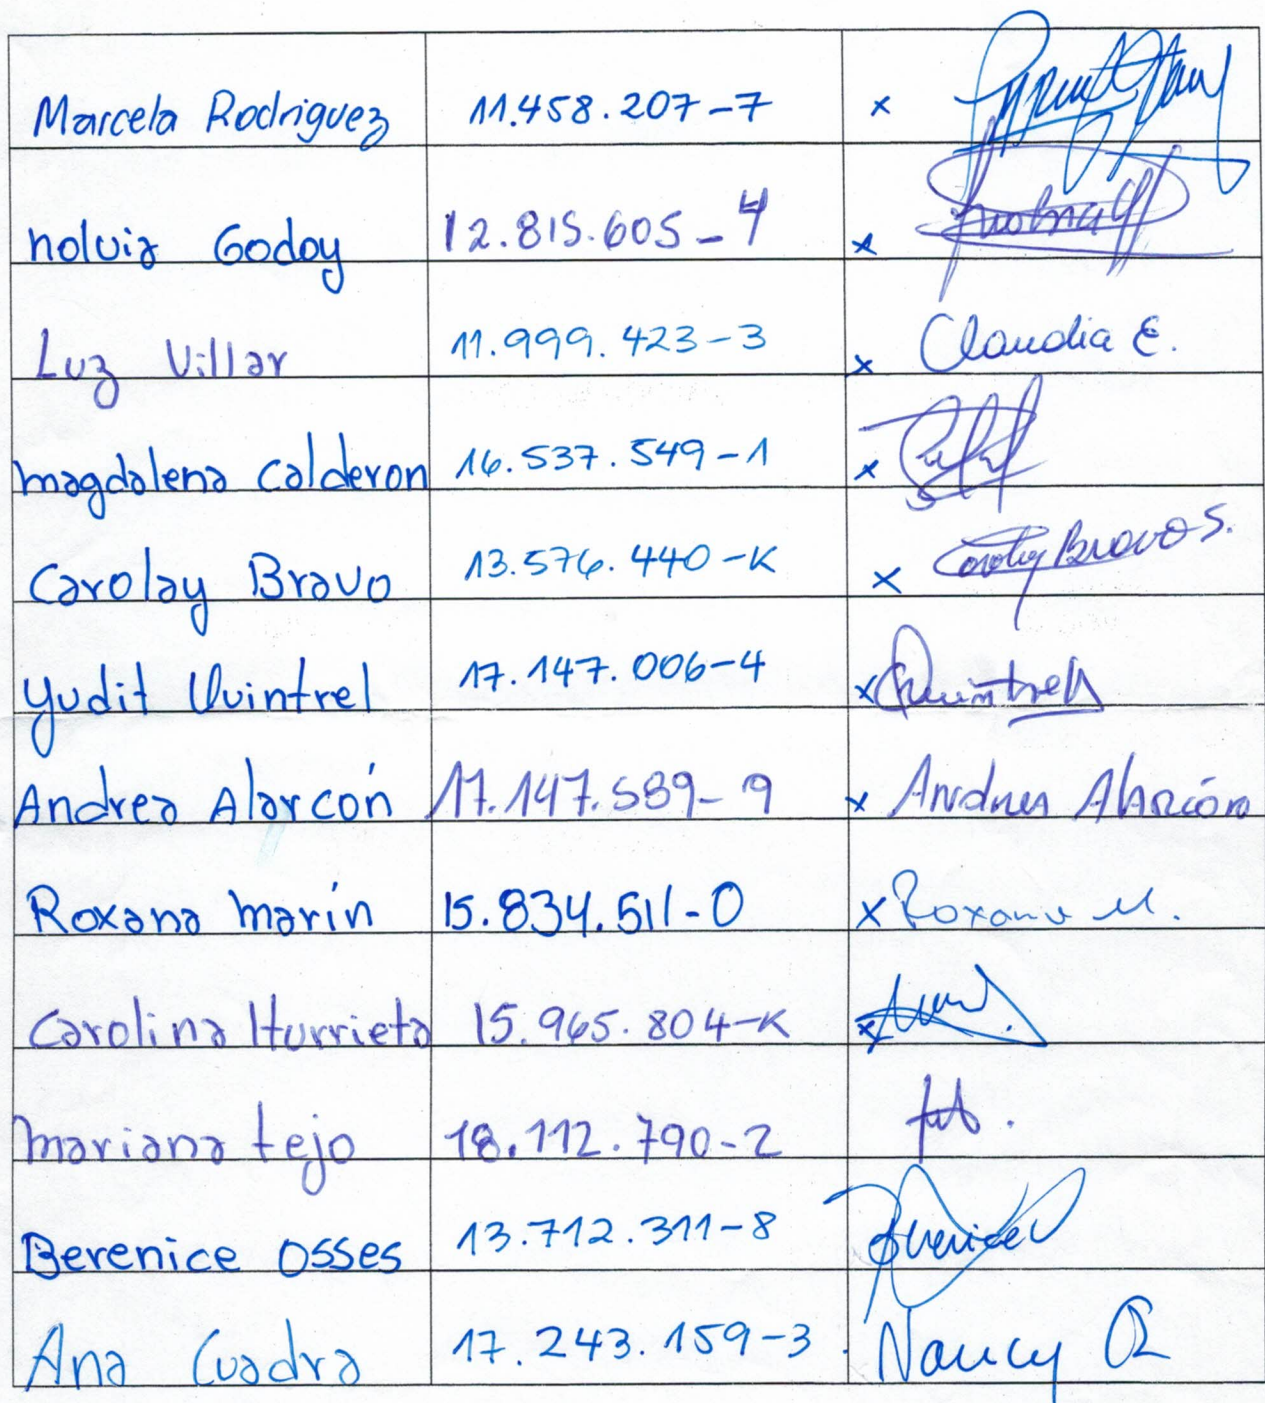 Marcela Rodriguez 11.458.207-7 x
nolvia Godoy 12.815.605-4 x
Luz Villar 11.999.423-3 x Claudia E.
magdalena Calderon 16.537.549-1 x
Carolay Bravo 13.576.440-K x Carolay Bravo S.
Yudit Quintrel 17.147.006-4 x Quintrel
Andrea Alarcón 17.147.589-9 x Andrea Alarcón
Roxana marín 15.834.511-0 x Roxana M.
Carolina Iturrieta 15.965.804-K x
mariana tejo 18.112.790-2
Berenice Osses 13.712.311-8 Berenice
Ana Cuadra 17.243.159-3 Nancy